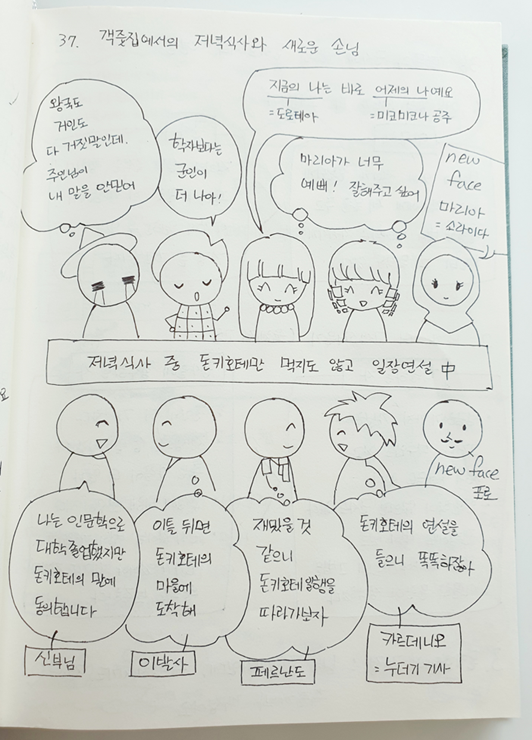 37. 객줏집에서의 저녁식사와 새로운 손님
왕국도
거인도
다 거짓말인데.
주인님이
내 말을 안믿어
학자보다는
군인이
더 나아!
지금의 나는 바로 어제의 나예요
=도로테아
=미코미코나 공주
마리아가 너무
예뻐! 잘해주고 싶어
new
face
마리아
=소라이다
저녁식사 중 돈키호테만 먹지도 않고 일장연설 中
new face
포로
나는 인문학으로
대학 졸업했지만
돈키호테의 말에
동의합니다
신부님
이틀 뒤면
돈키호테의
마을에
도착해
이발사
재밌을 것
같으니
돈키호테 일행을
따라가보자
페르난도
돈키호테의 연설을
들으니 똑똑하잖아
카르데니오
=누더기 기사